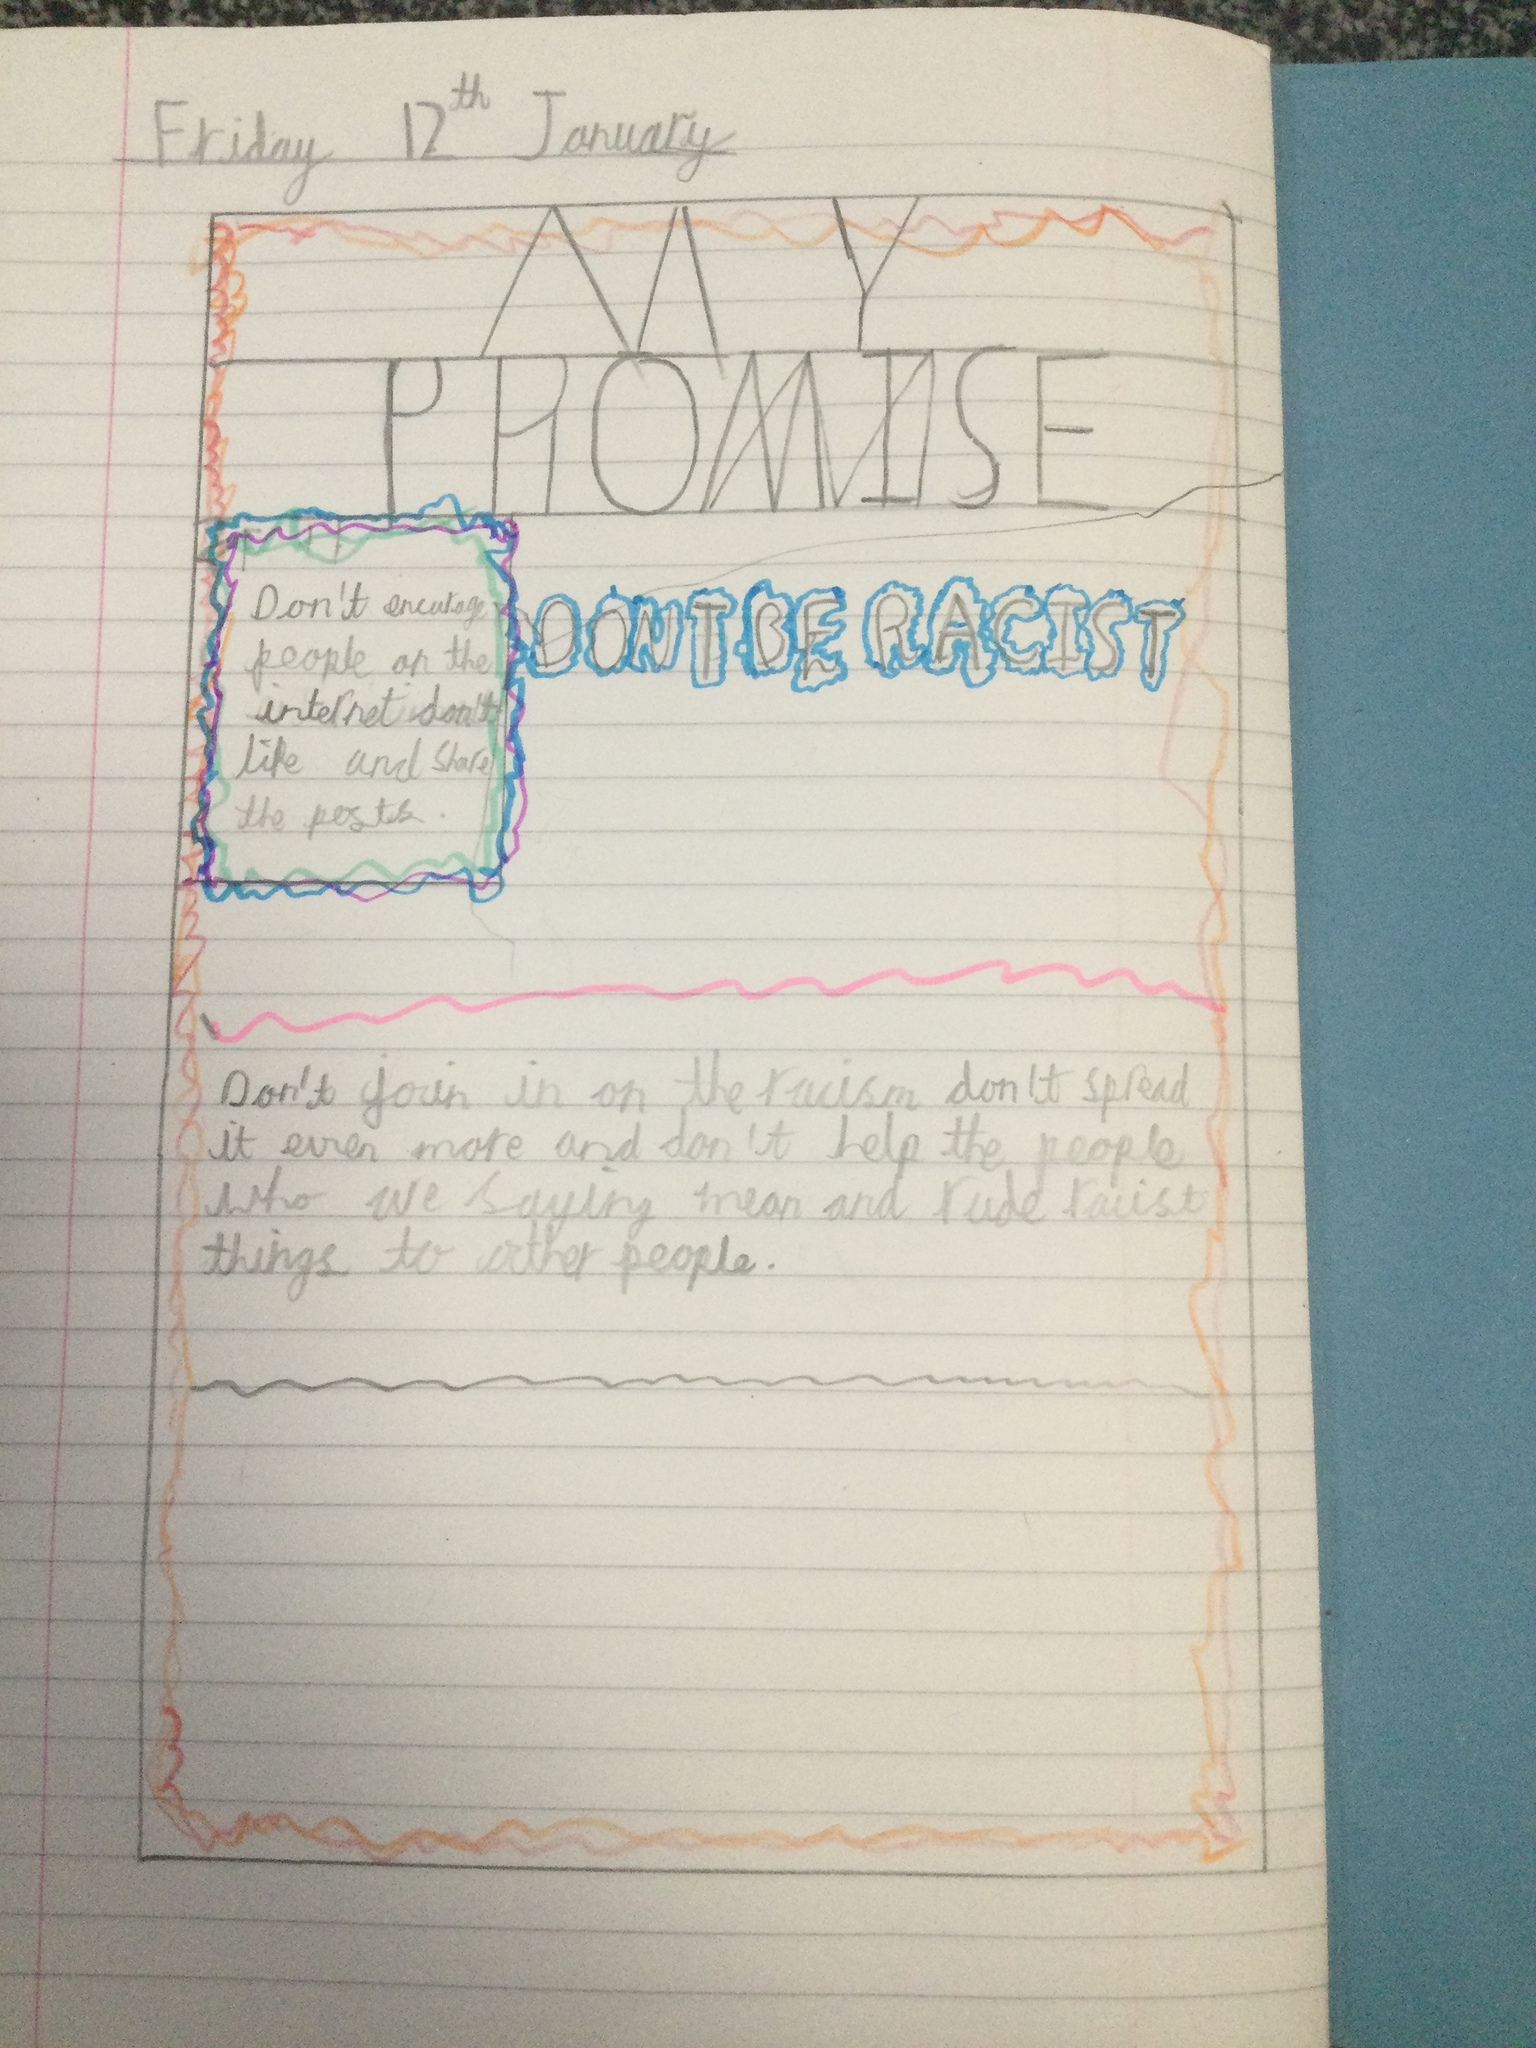 Friday 12th January
MY
PROMISE
Don't encurage
people on the
internet don't
like and share
the posts.
DONT BE RACIST
Don't join in on the racism don't spread
it even more and don't help the people
who we saying mean and rude racist
things to other people.